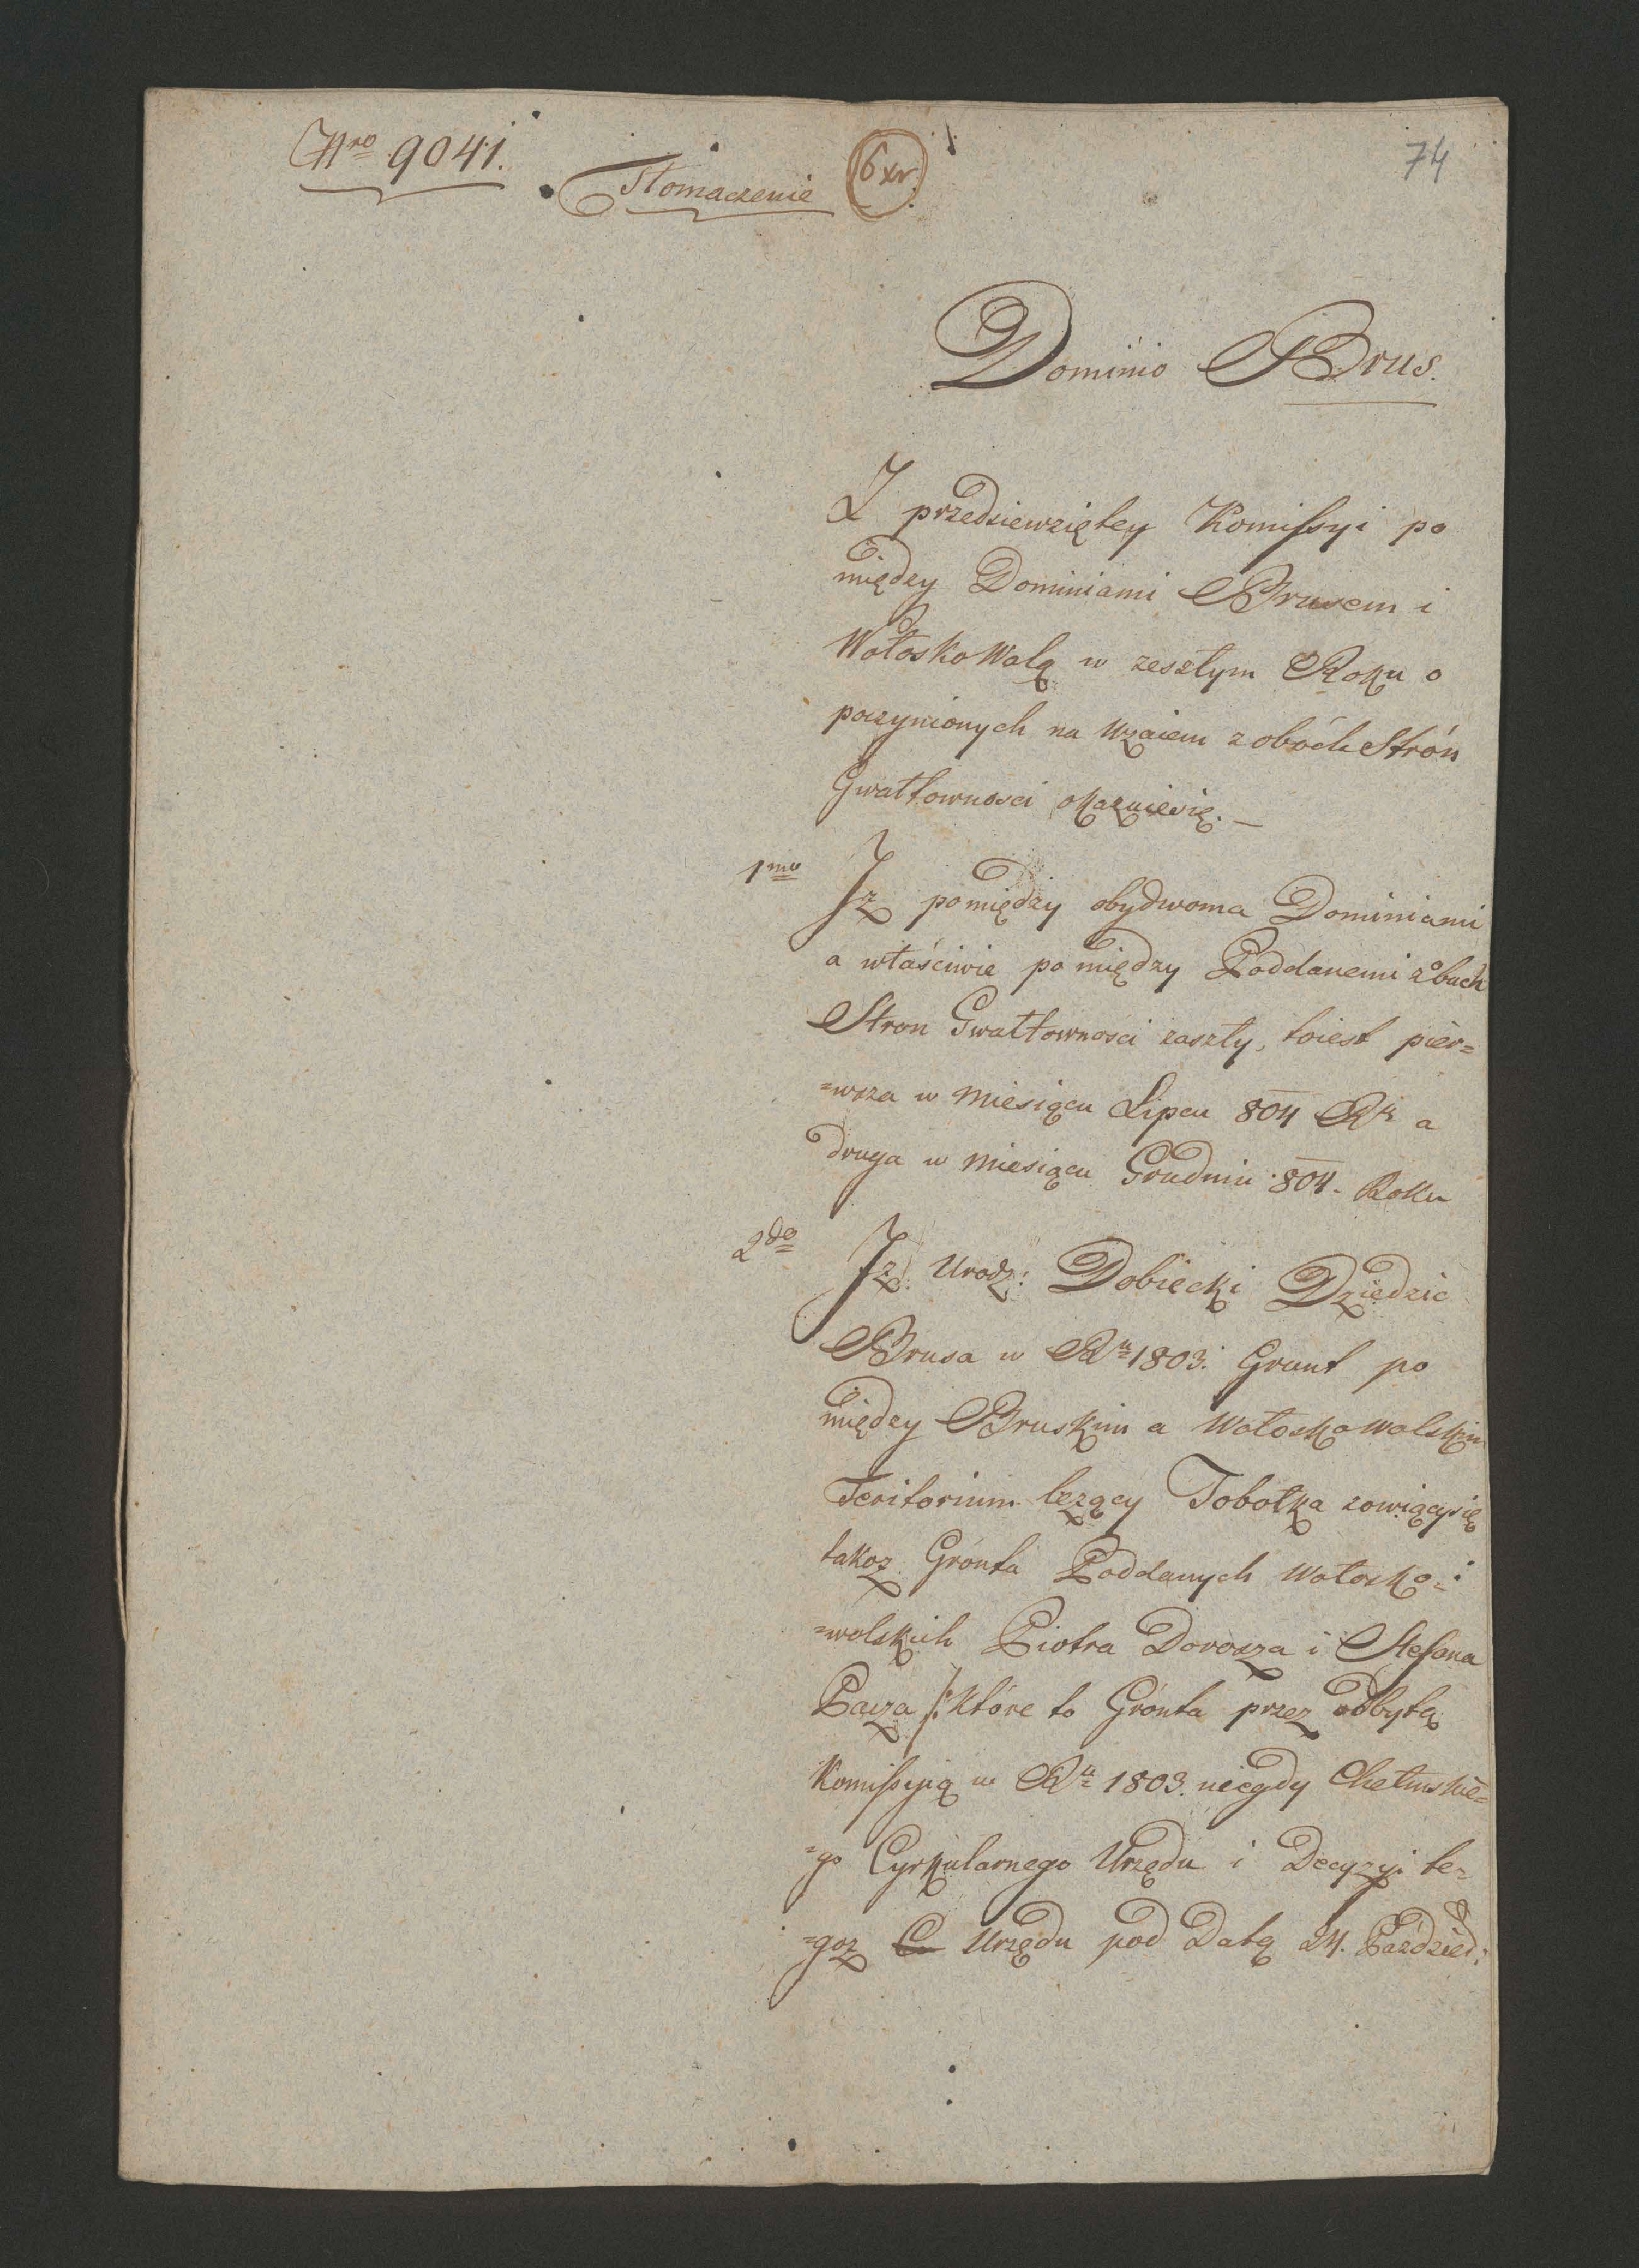 Nro 9041.
Tłomaczenie
6 xr.
74
Dominio Brus.
Z przedsiewziętey Komissyi po
między Dominiami Brusem i
Wołosko Wolą w zeszłym Roku o
poczynionych na wzaiem z obóch Strón
Gwałtownosci okazuiesię. —
1mo Iz pomiędzy obydwoma Dominiami
a właściwie po między Poddanemi z obuch
Stron Gwałtownosci zaszły, toiest pier=
=wsza w Miesiącu Lipcu 804 Rk a
druga w Miesiącu Grudniu 804. Roku
2do Iz Urodz: Dobiecki Dziedzic
Brusa w Ru 1803. Grunt po
między Bruskim a Wołosko Wolskim
Teritorium lezący Tobołka zowiącysię
takoz Grónta Poddanych Wołosko=
=wolskich Piotra Dorosza i Stefana
Pacza /: Które to Grónta przez odbytą
Komissyią w Ru 1803. niegdy Chełmskie=
=go Cyrkularnego Urzędu i Decyzyi te=
=goz C Urzędu pod Datą 24. Paździer: